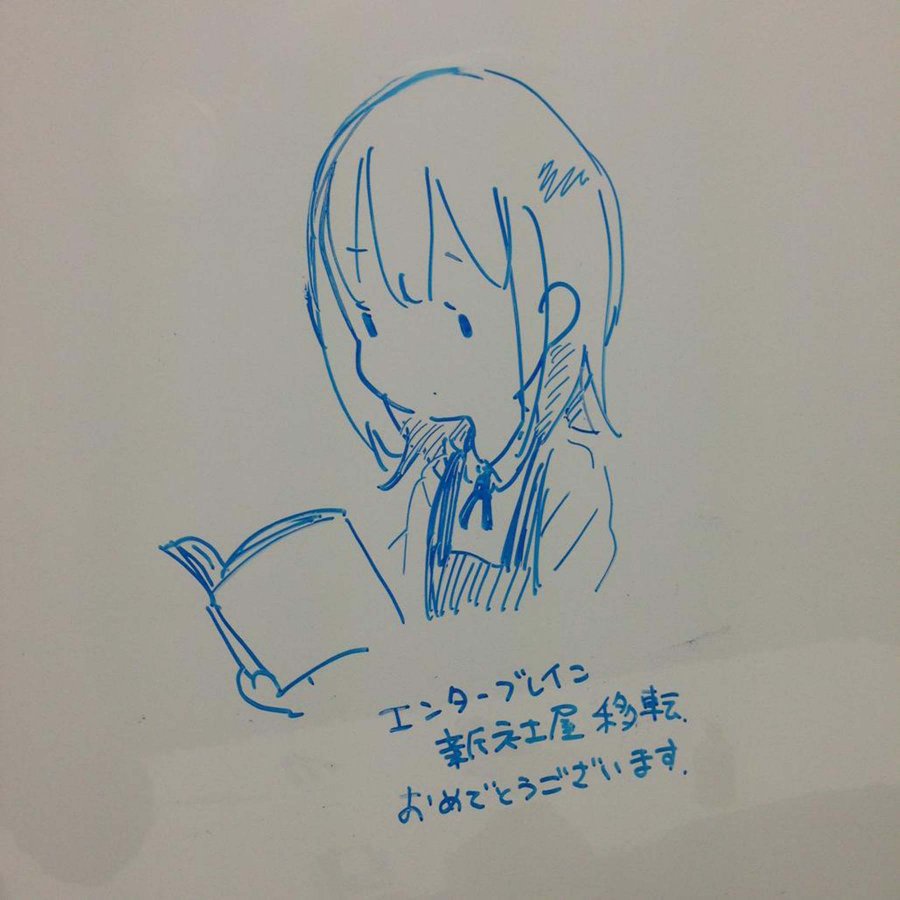 エンターブレイン
新社屋移転.
おめでとうございます.